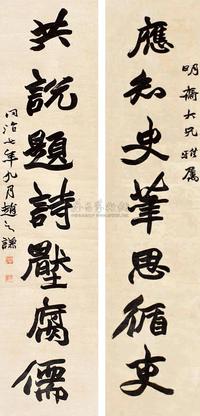 明齋大兄雅屬
應知史筆思循吏
共說題詩壓腐儒
同治七年九月趙之謙